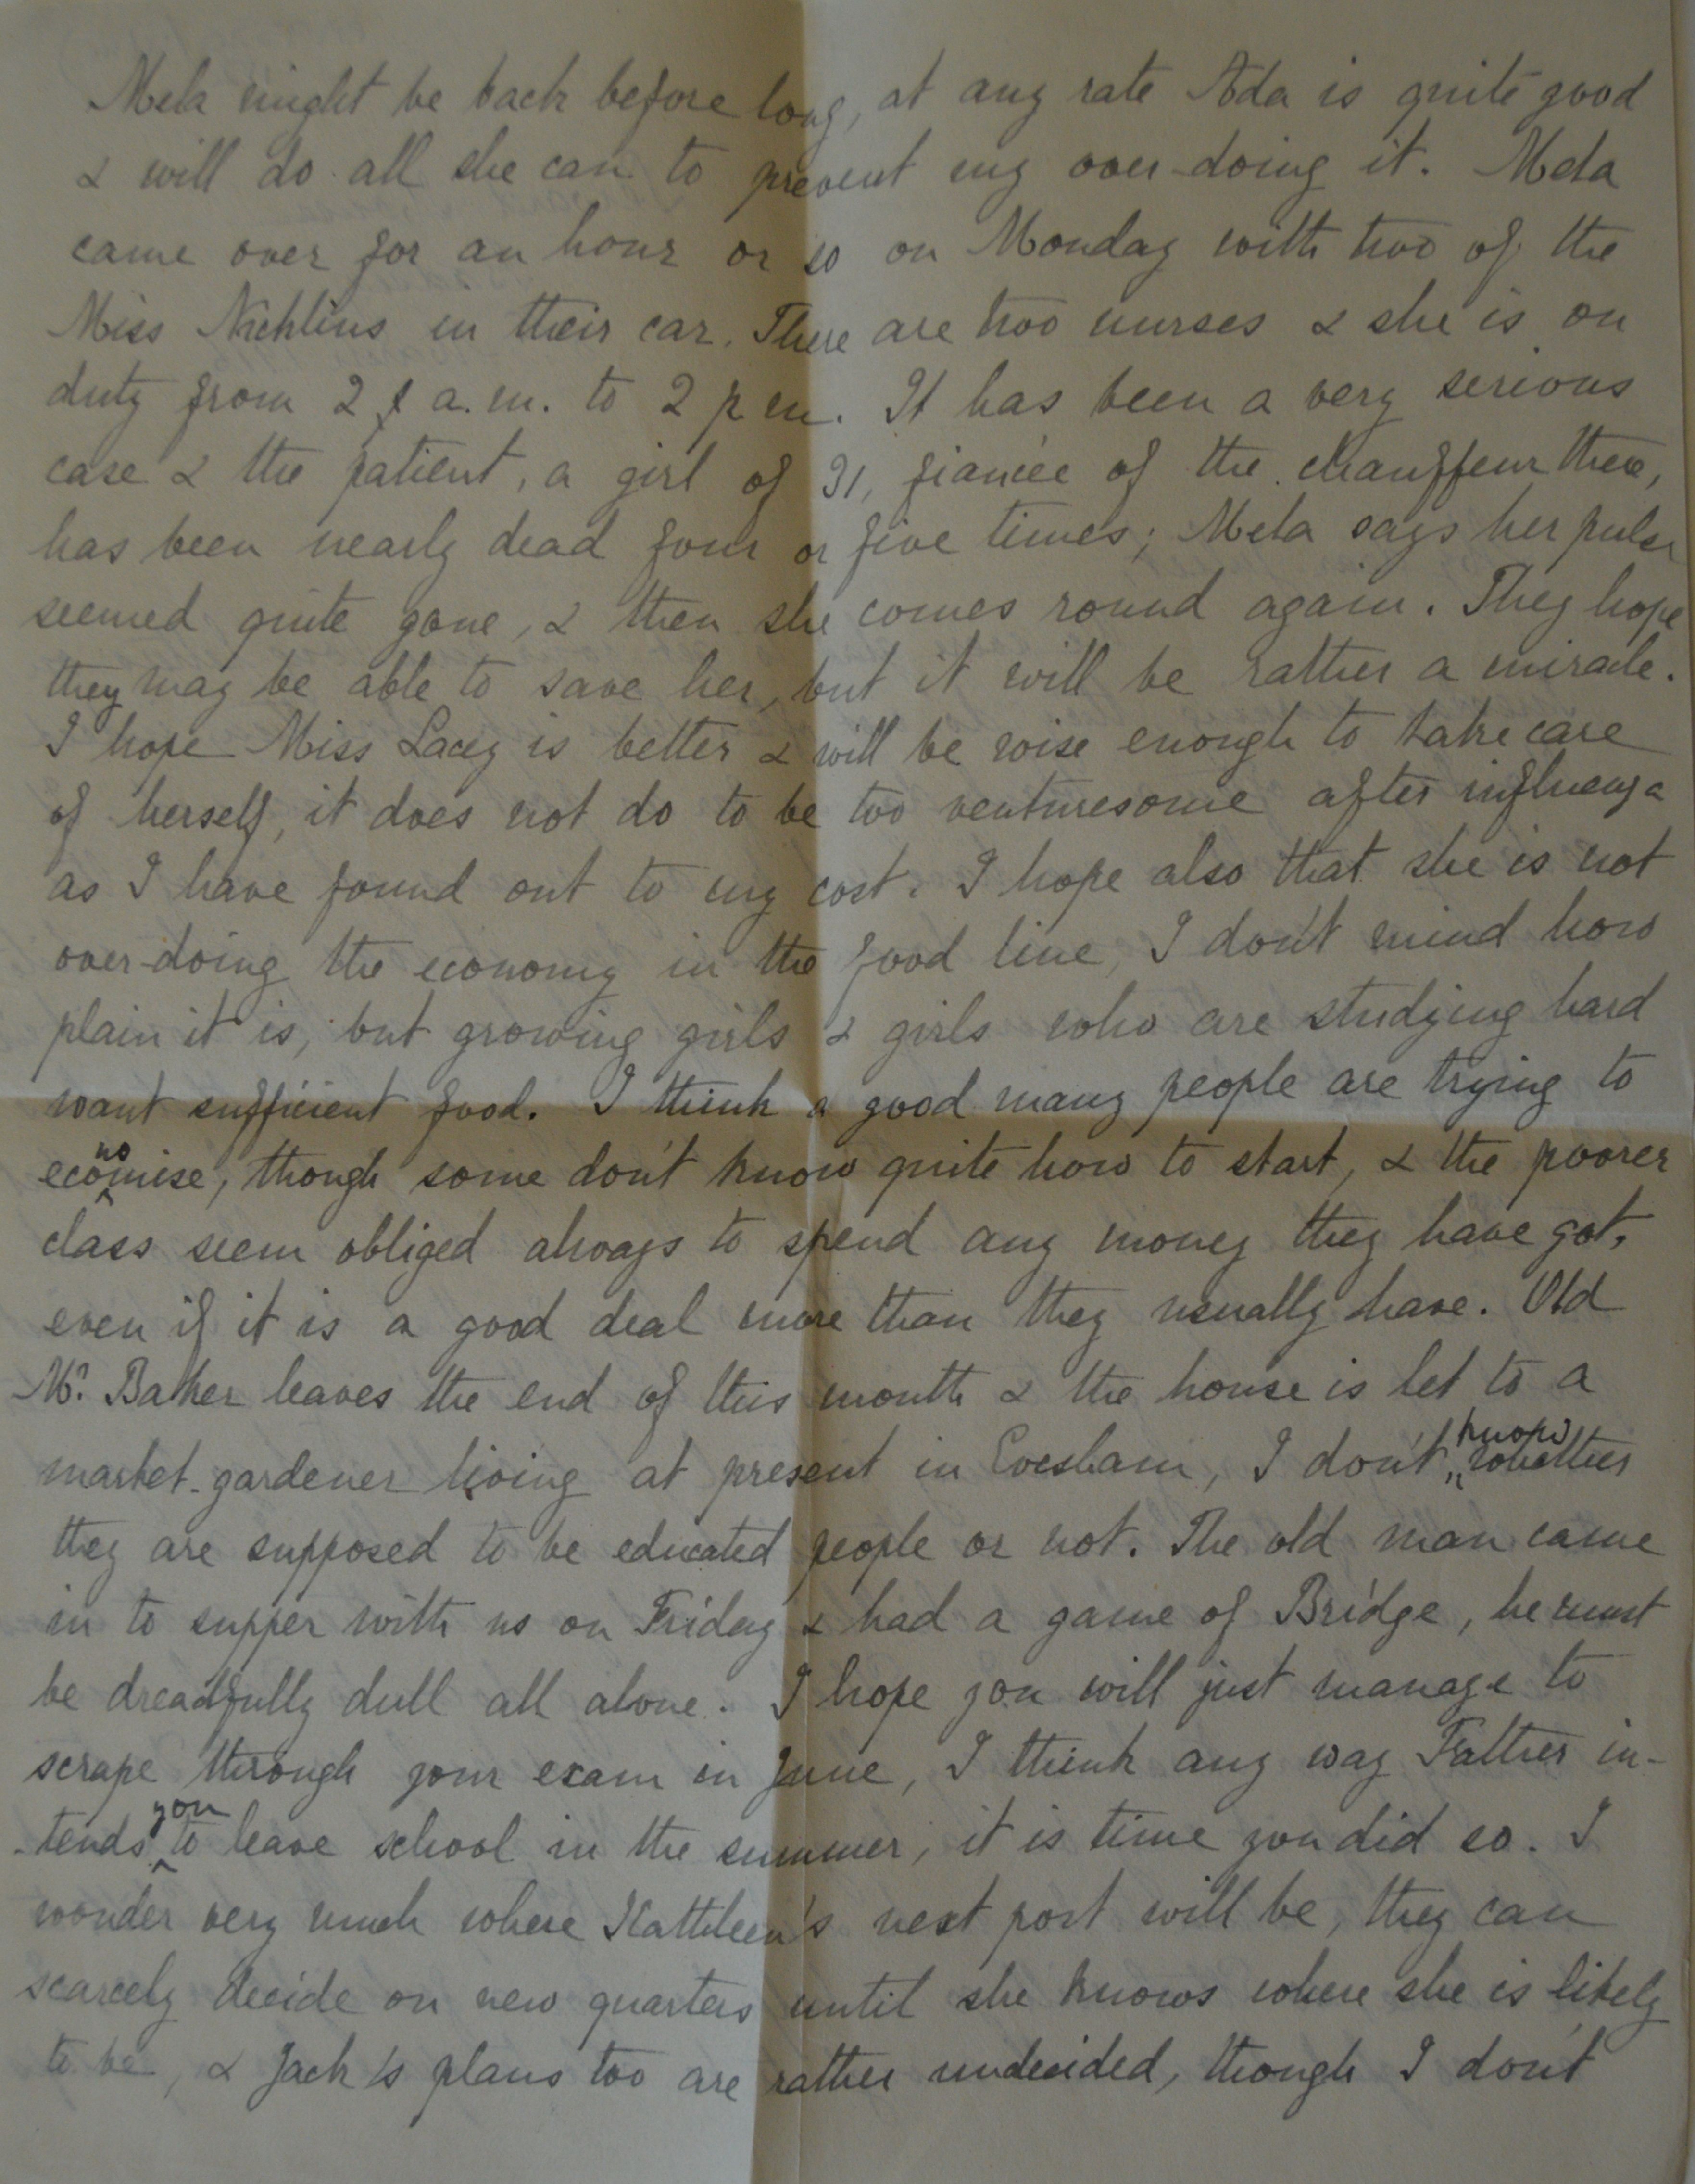 Mela might be back before long, at any rate Ada is quite good
& will do all she can to prevent my over-doing it. Mela
came over for an hour or so on Monday with two of the
Miss Nicklins in their car. There are two nurses & she is on
duty from 2 a.m. to 2 p.m. It has been a very serious
case & the patient, a girl of 31, fiancée of the chauffeur there,
has been nearly dead four or five times; Mela says her pulse
seemed quite gone, & then she comes round again. They hope
they may be able to save her, but it will be rather a miracle.
I hope Miss Lacey is better & will be wise enough to take care
of herself, it does not do to be too venturesome after influenza
as I have found out to my cost. I hope also that she is not
over-doing the economy in the food line, I don't mind how
plain it is, but growing girls & girls who are studying hard
want sufficient food. I think a good many people are trying to
economise, though some don't know quite how to start, & the poorer
class seem obliged always to spend any money they have got,
even if it is a good deal more than they usually have. Old
Mr. Baker leaves the end of this month & the house is let to a
market-gardener living at present in Evesham, I don't know whether
they are supposed to be educated people or not. The old man came
in to supper with us on Friday & had a game of Bridge, he must
be dreadfully dull all alone. I hope you will just manage to
scrape through your exam in June, I think any way Father in-
-tends you to leave school in the summer, it is time you did so. I
wonder very much where Kathleen's next post will be, they can
scarcely decide on new quarters until she knows where she is likely
to be, & Jack's plans too are rather undecided, though I don't